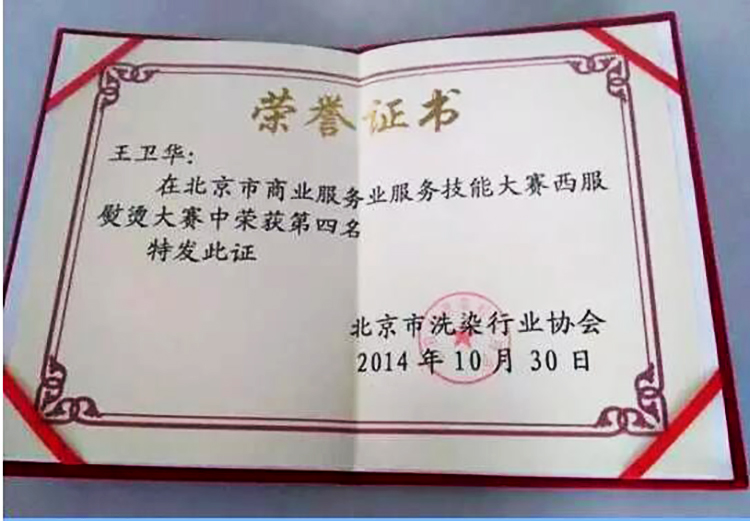 荣誉证书
王卫华：
在北京市商业服务业服务技能大赛西服
熨烫大赛中荣获第四名
特发此证
北京市洗染行业协会
2014年10月30日